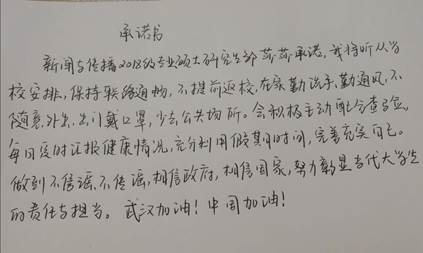 承诺书
新闻与传播2018级专业硕士研究生郭莎莎承诺，我将听从学
校安排，保持联络通畅，不提前返校，在家勤洗手、勤通风，不
随意外出，出门戴口罩，少去公共场所。会积极主动配合查验。
每日按时汇报健康情况，充分利用假期时间，完善充实自己。
做到不信谣、不传谣，相信政府，相信国家，努力彰显当代大学生
的责任与担当。武汉加油！中国加油！